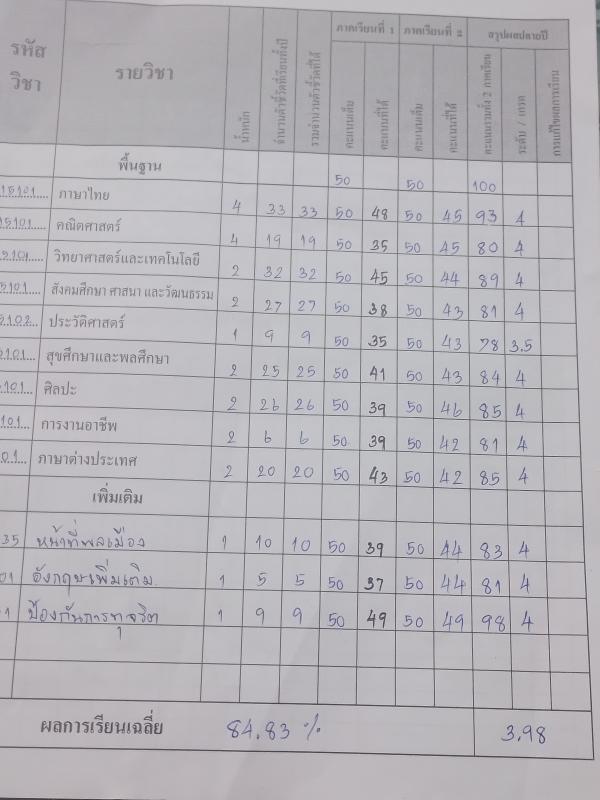 รหัสวิชา รายวิชา น้ำหนัก จำนวนตัวชี้วัดที่เรียนทั้งปี รวมจำนวนตัวชี้วัดที่ได้ ภาคเรียนที่ 1 ภาคเรียนที่ 2 สรุปผลปลายปี
คะแนนเต็ม คะแนนที่ได้ คะแนนเต็ม คะแนนที่ได้ คะแนนรวมทั้ง 2 ภาคเรียน ระดับ / เกรด การแก้ไขผลการเรียน
พื้นฐาน 50 50 100
15101 ภาษาไทย 4 33 33 50 48 50 45 93 4
15101 คณิตศาสตร์ 4 19 19 50 35 50 45 80 4
15101 วิทยาศาสตร์และเทคโนโลยี 2 32 32 50 45 50 44 89 4
5101 สังคมศึกษา ศาสนา และวัฒนธรรม 2 27 27 50 38 50 43 81 4
5102 ประวัติศาสตร์ 1 9 9 50 35 50 43 78 3.5
5101 สุขศึกษาและพลศึกษา 2 25 25 50 41 50 43 84 4
5101 ศิลปะ 2 26 26 50 39 50 46 85 4
101 การงานอาชีพ 2 6 6 50 39 50 42 81 4
01 ภาษาต่างประเทศ 2 20 20 50 43 50 42 85 4
เพิ่มเติม
35 หน้าที่พลเมือง 1 10 10 50 39 50 44 83 4
01 อังกฤษเพิ่มเติม 1 5 5 50 37 50 44 81 4
1 ป้องกันการทุจริต 1 9 9 50 49 50 49 98 4
ผลการเรียนเฉลี่ย 84.83 % 3.98